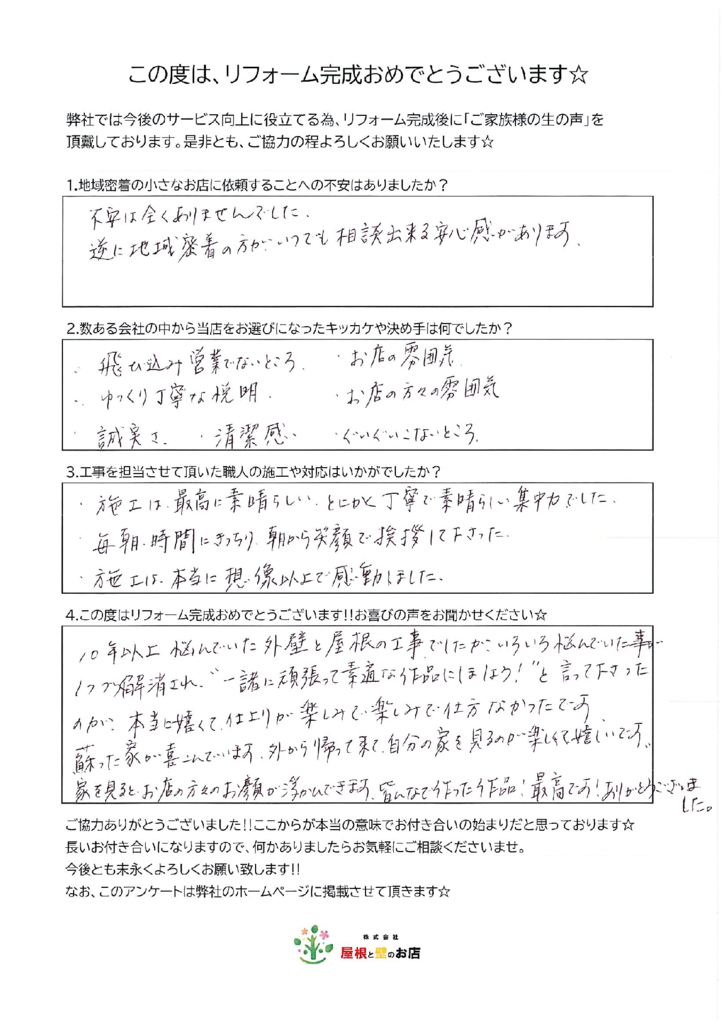 この度は、リフォーム完成おめでとうございます☆
弊社では今後のサービス向上に役立てる為、リフォーム完成後に「ご家族様の生の声」を
頂戴しております。是非とも、ご協力の程よろしくお願いいたします☆
1.地域密着の小さなお店に依頼することへの不安はありましたか？
不安は全くありませんでした.
逆に地域密着の方が、いつでも相談出来る安心感があります.
2.数ある会社の中から当店をお選びになったキッカケや決め手は何でしたか？
・飛び込み営業でないところ. ・お店の雰囲気
・ゆっくり丁寧な説明. ・お店の方々の雰囲気
・誠実さ. ・清潔感 ・ぐいぐいこないところ.
3.工事を担当させて頂いた職人の施工や対応はいかがでしたか？
・施工は、最高に素晴らしい、とにかく丁寧で素晴らしい集中力でした.
・毎朝、時間にきっちり、朝から笑顔で挨拶して下さった.
・施工は、本当に想像以上で感動しました.
4.この度はリフォーム完成おめでとうございます!!お喜びの声をお聞かせください☆
10年以上悩んでいた外壁と屋根の工事でしたが、いろいろ悩んでいた事が
1つづつ解消され、“一諸に頑張って素適な作品にしましょう！”と言って下さった
のが、本当に嬉しくて、仕上りが楽しみで、楽しみで仕方なかったです
蘇った家が喜こんでいます。外から帰って来て、自分の家を見るのが楽しくて嬉しいです。
家を見ると、お店の方々のお顔が浮かんできます。皆んなで作った作品！最高です！ありがとうございま
した。
ご協力ありがとうございました!!ここからが本当の意味でお付き合いの始まりだと思っております☆
長いお付き合いになりますので、何かありましたらお気軽にご相談くださいませ。
今後とも末永くよろしくお願い致します!!
なお、このアンケートは弊社のホームページに掲載させて頂きます☆
株式会社
屋根と壁のお店